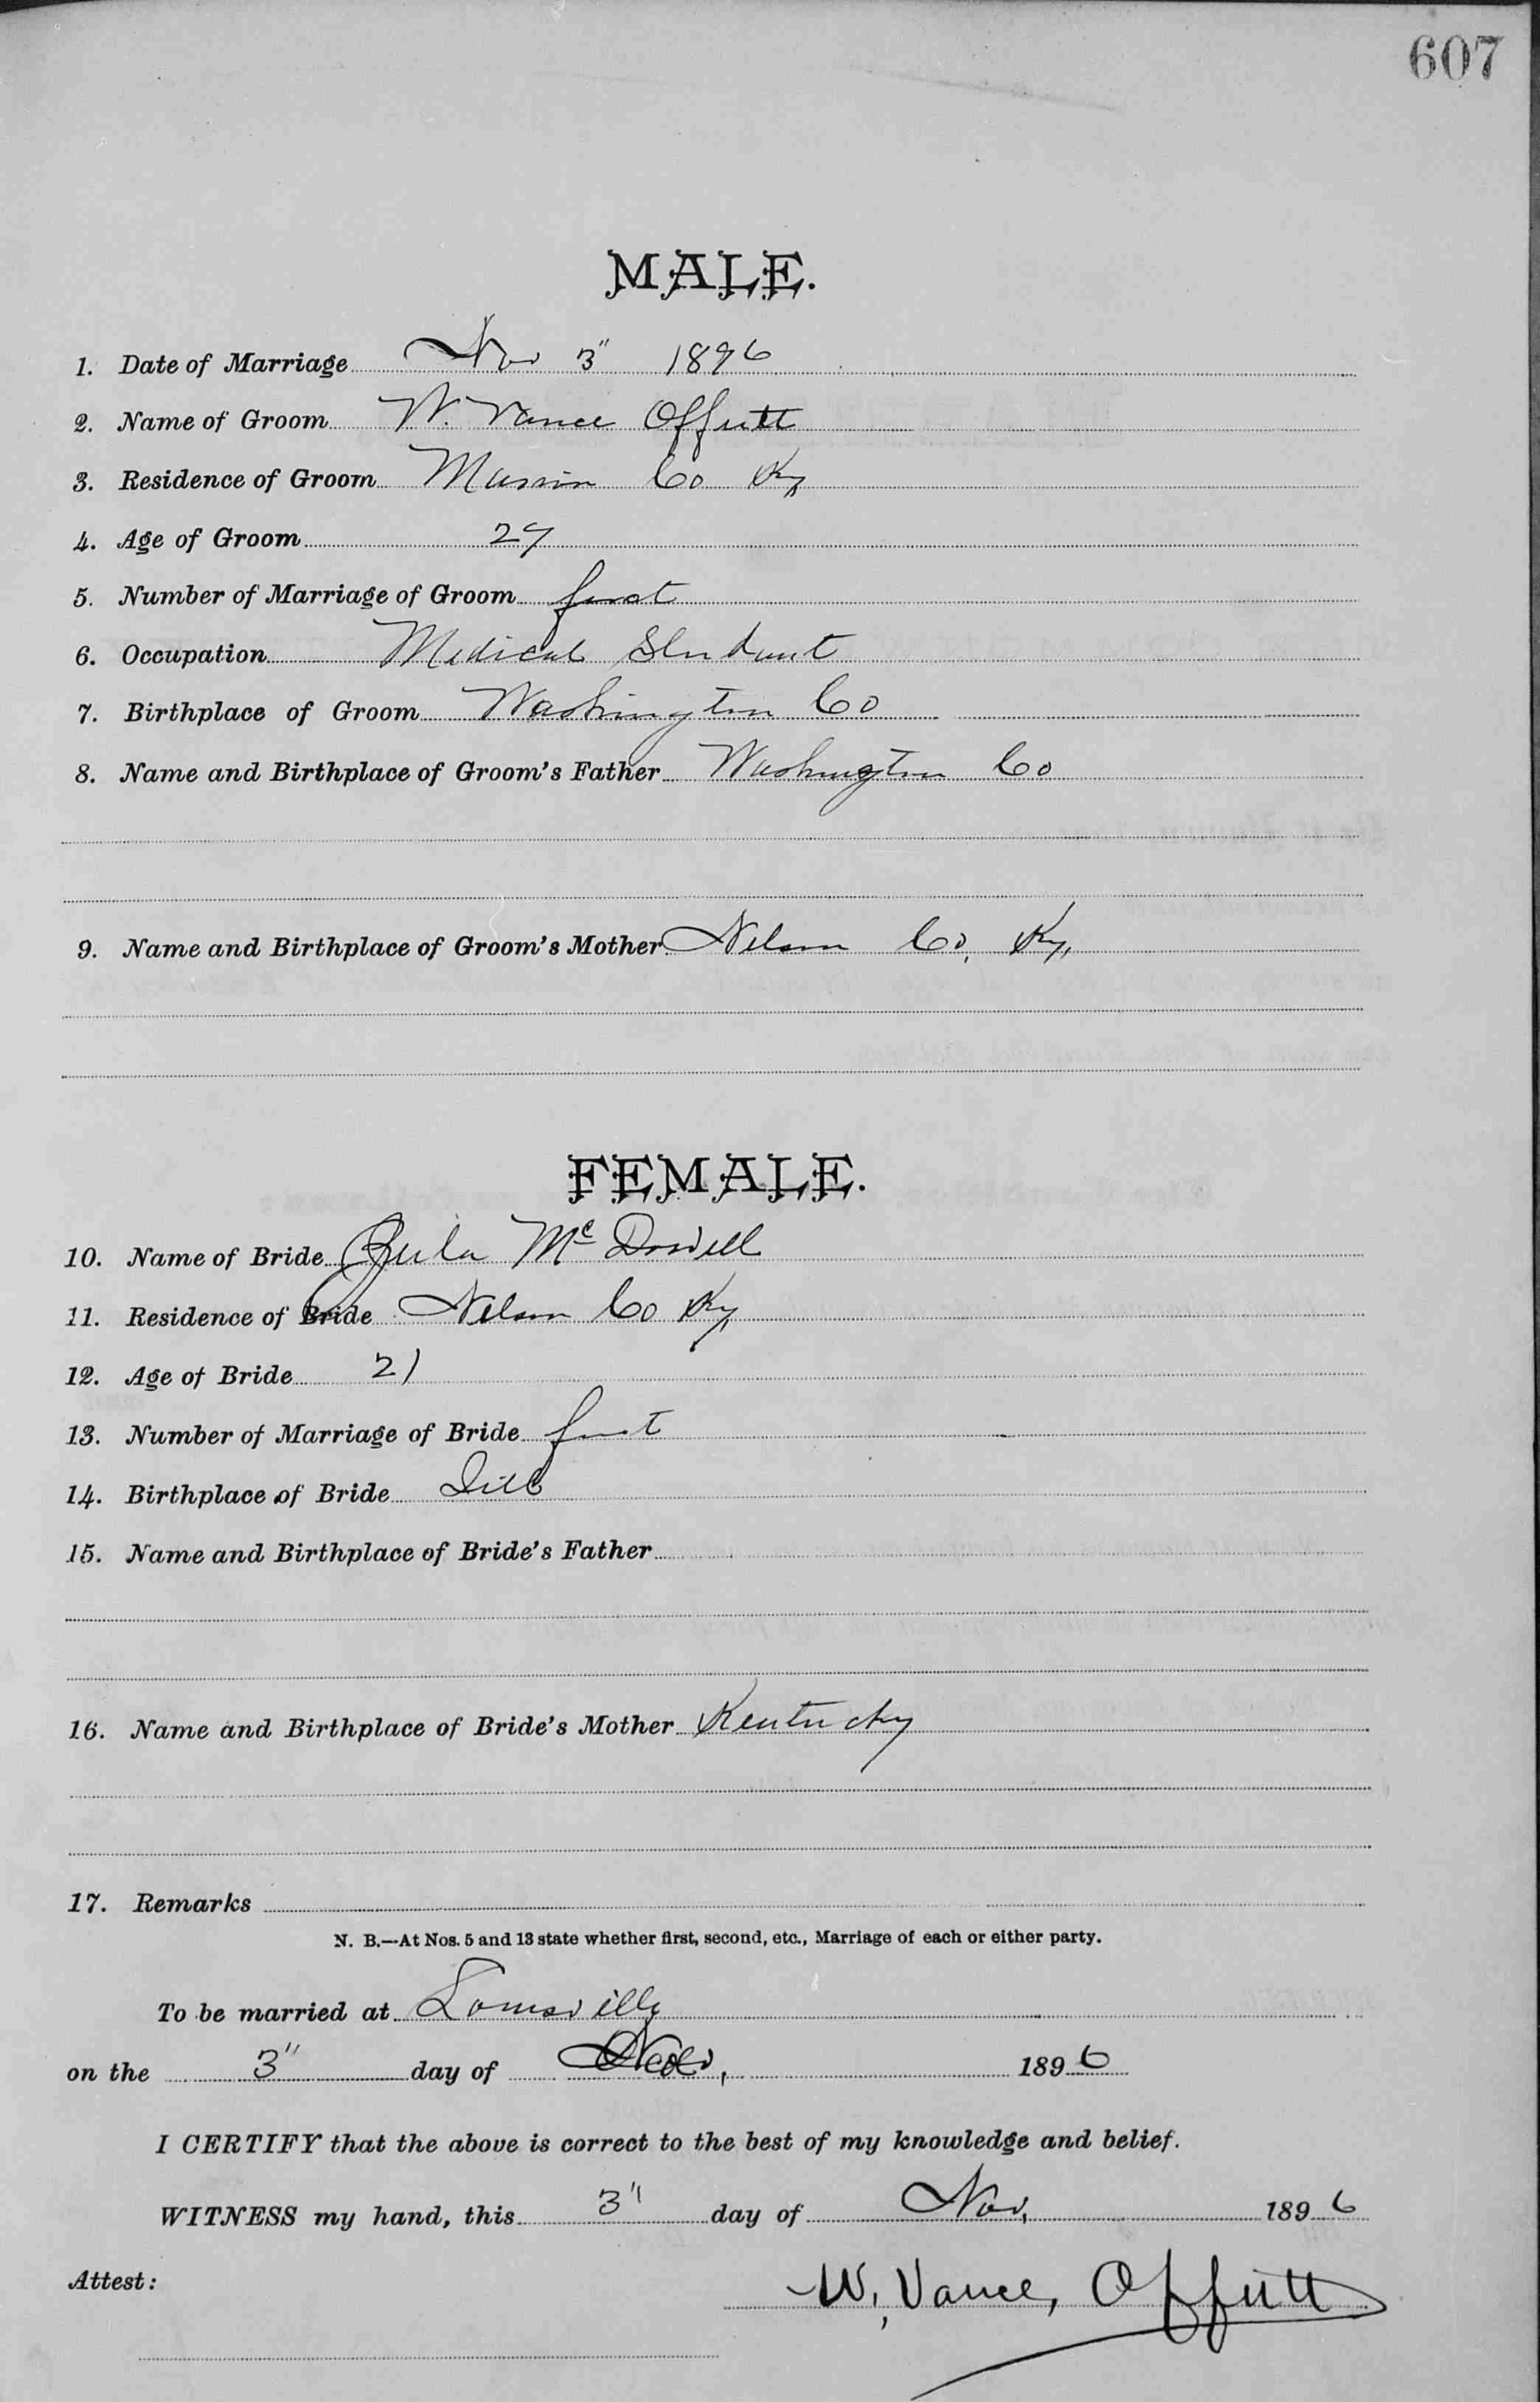 607
MALE.
1. Date of Marriage Nov 3" 1896
2. Name of Groom W. Vance Offutt
3. Residence of Groom Marion Co Ky
4. Age of Groom 27
5. Number of Marriage of Groom first
6. Occupation Medical Student
7. Birthplace of Groom Washington Co
8. Name and Birthplace of Groom's Father Washington Co
9. Name and Birthplace of Groom's Mother Nelson Co, Ky,
FEMALE.
10. Name of Bride McDowell
11. Residence of Bride Nelson Co Ky,
12. Age of Bride 21
13. Number of Marriage of Bride first
14. Birthplace of Bride
15. Name and Birthplace of Bride's Father
16. Name and Birthplace of Bride's Mother Kentucky
17. Remarks
N. B.—At Nos. 5 and 13 state whether first, second, etc., Marriage of each or either party.
To be married at Louisville
on the 3" day of Nov, 1896
I CERTIFY that the above is correct to the best of my knowledge and belief.
WITNESS my hand, this 3" day of Nov, 1896
Attest:
W, Vance, Offutt